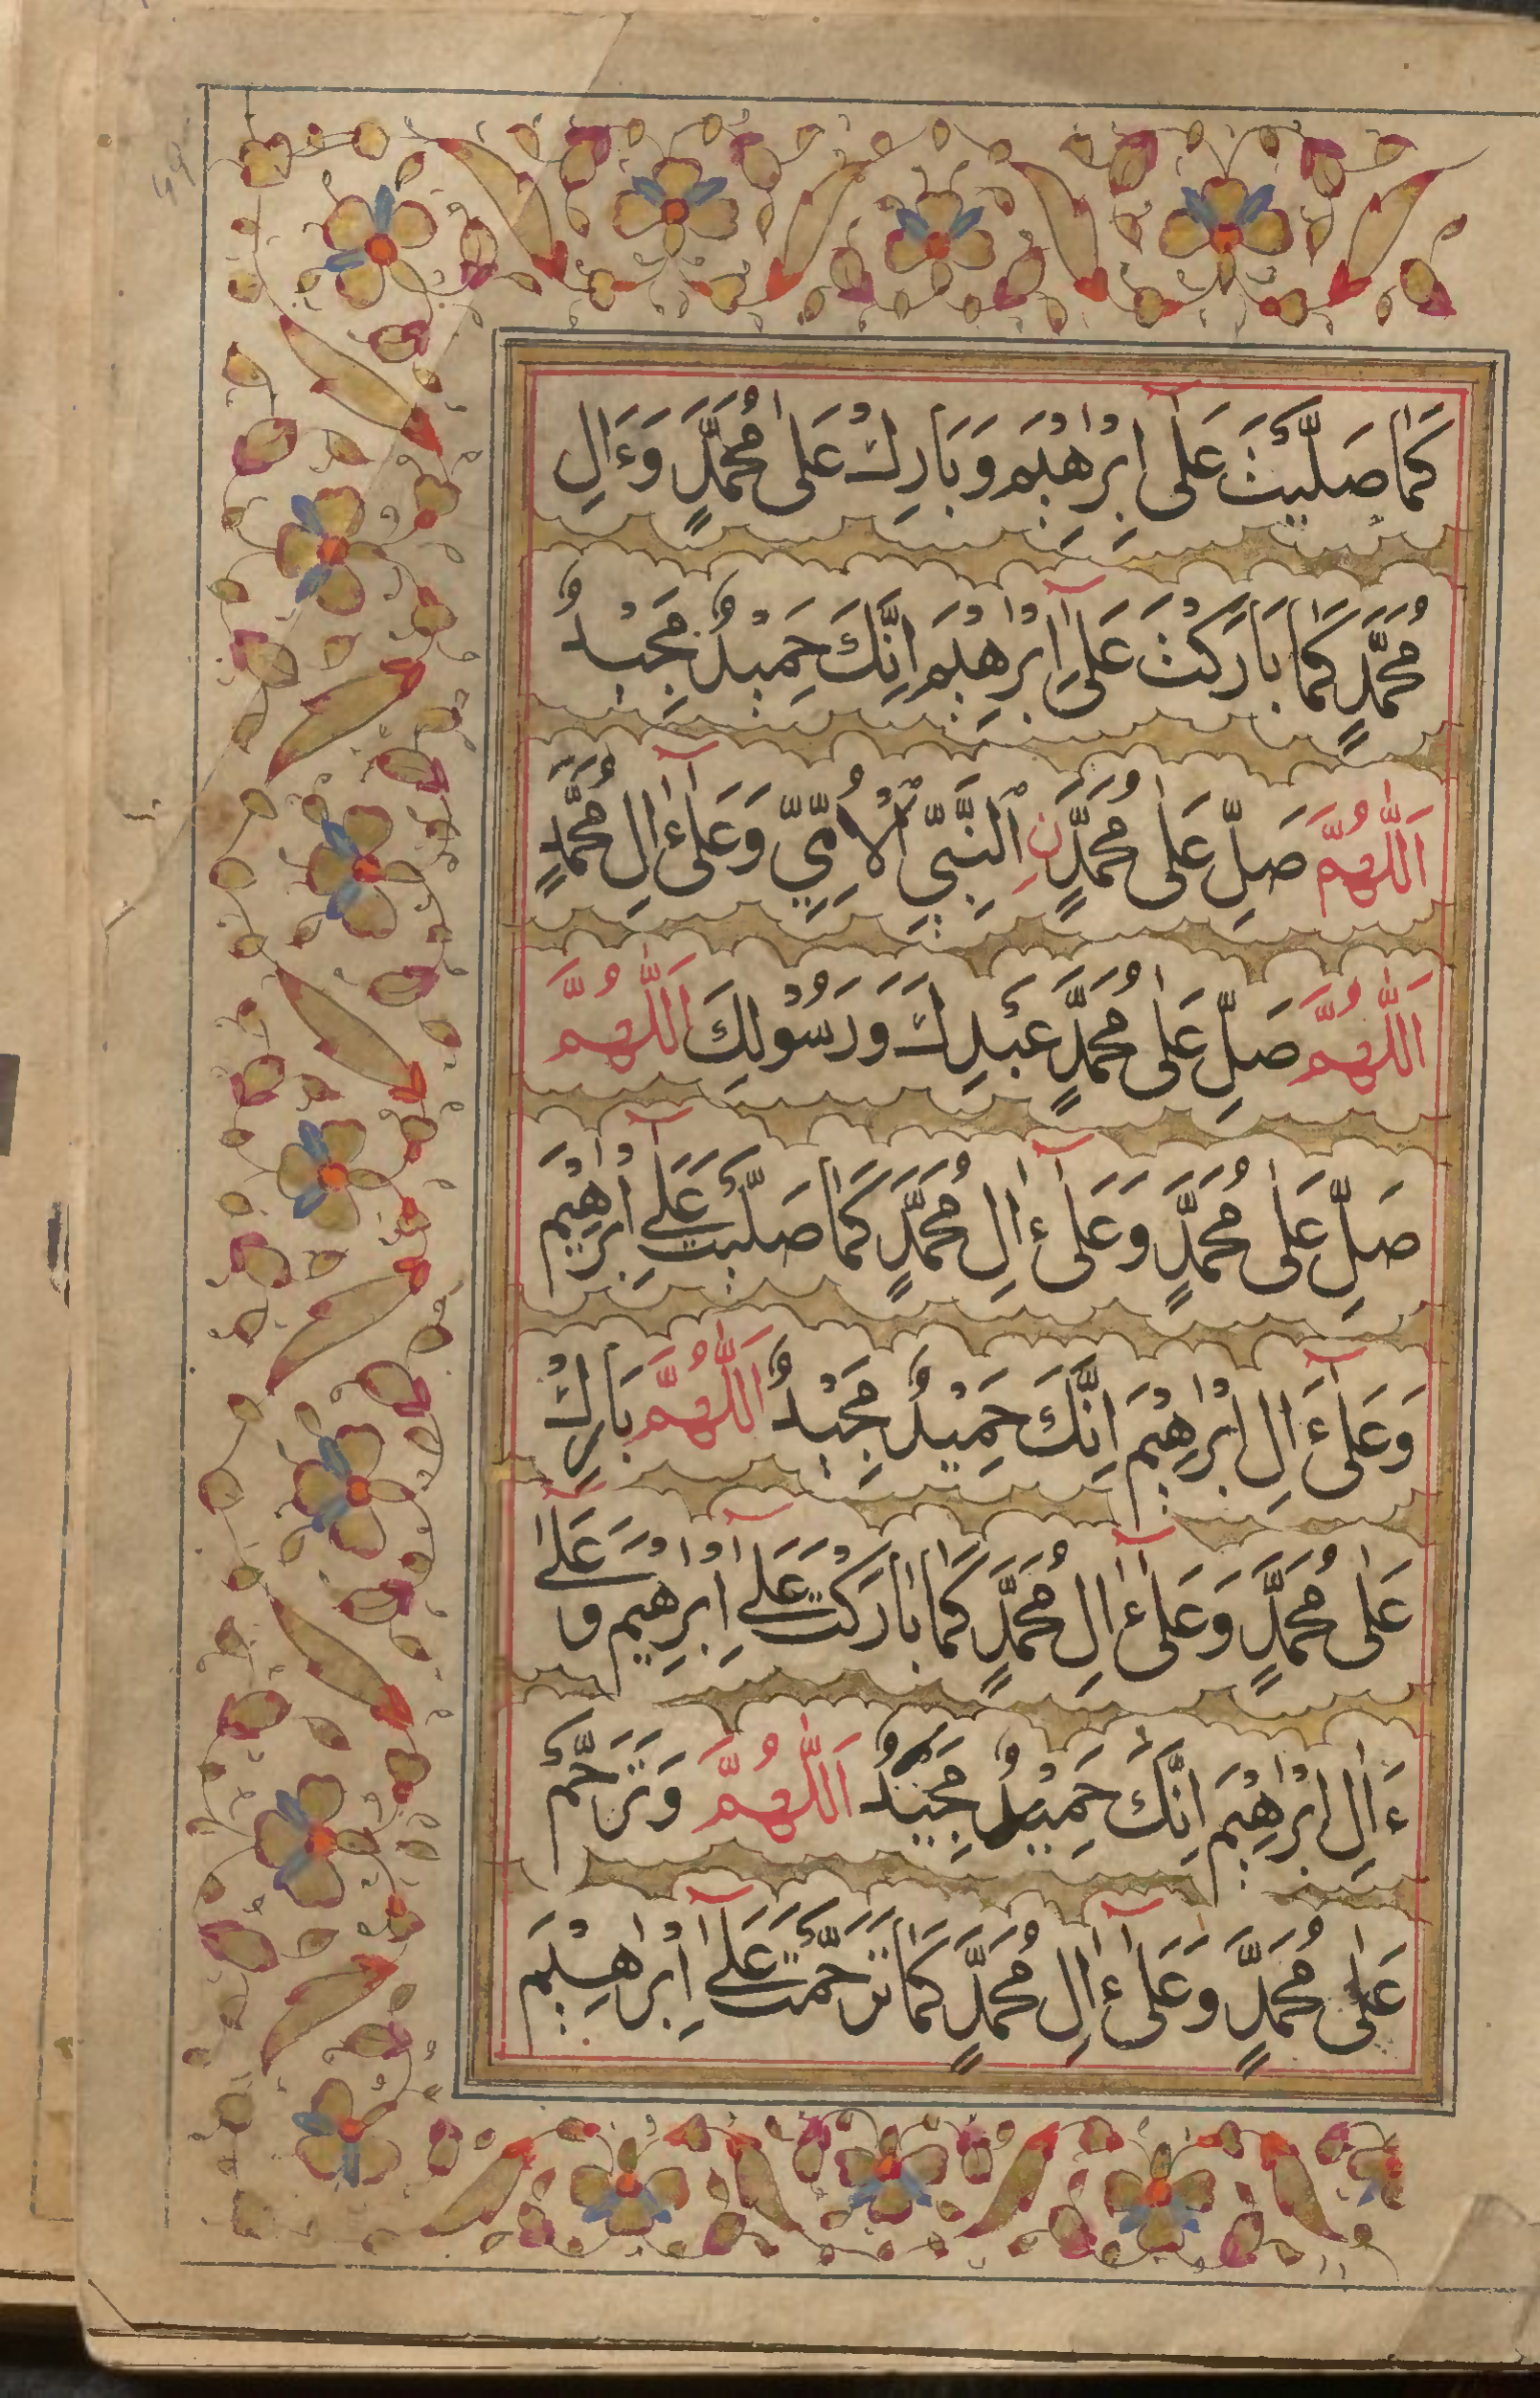 كَمَا صَلَّيْتَ عَلٰٓى اِبْرٰهِيْمَ وَبَارِكْ عَلٰى مُحَمَّدٍ وَءَالِ
مُحَمَّدٍ كَمَا بَارَكْتَ عَلٰٓى اِبْرٰهِيْمَ اِنَّكَ حَمِيْدٌ مَجِيْدٌ
اَللّٰهُمَّ صَلِّ عَلٰى مُحَمَّدٍ نِ ٱلنَّبِيِّ ٱلْاُمِّيِّ وَعَلٰٓى ءَالِ مُحَمَّدٍ
اَللّٰهُمَّ صَلِّ عَلٰى مُحَمَّدٍ عَبْدِكَ وَرَسُوْلِكَ اَللّٰهُمَّ
صَلِّ عَلٰى مُحَمَّدٍ وَعَلٰٓى ءَالِ مُحَمَّدٍ كَمَا صَلَّيْتَ عَلٰٓى اِبْرٰهِيْمَ
وَعَلٰٓى ءَالِ اِبْرٰهِيْمَ اِنَّكَ حَمِيْدٌ مَجِيْدٌ اَللّٰهُمَّ بَارِكْ
عَلٰى مُحَمَّدٍ وَعَلٰٓى ءَالِ مُحَمَّدٍ كَمَا بَارَكْتَ عَلٰٓى اِبْرٰهِيْمَ وَعَلٰٓى
ءَالِ اِبْرٰهِيْمَ اِنَّكَ حَمِيْدٌ مَجِيْدٌ اَللّٰهُمَّ وَتَرَحَّمْ
عَلٰى مُحَمَّدٍ وَعَلٰٓى ءَالِ مُحَمَّدٍ كَمَا تَرَحَّمْتَ عَلٰٓى اِبْرٰهِيْمَ